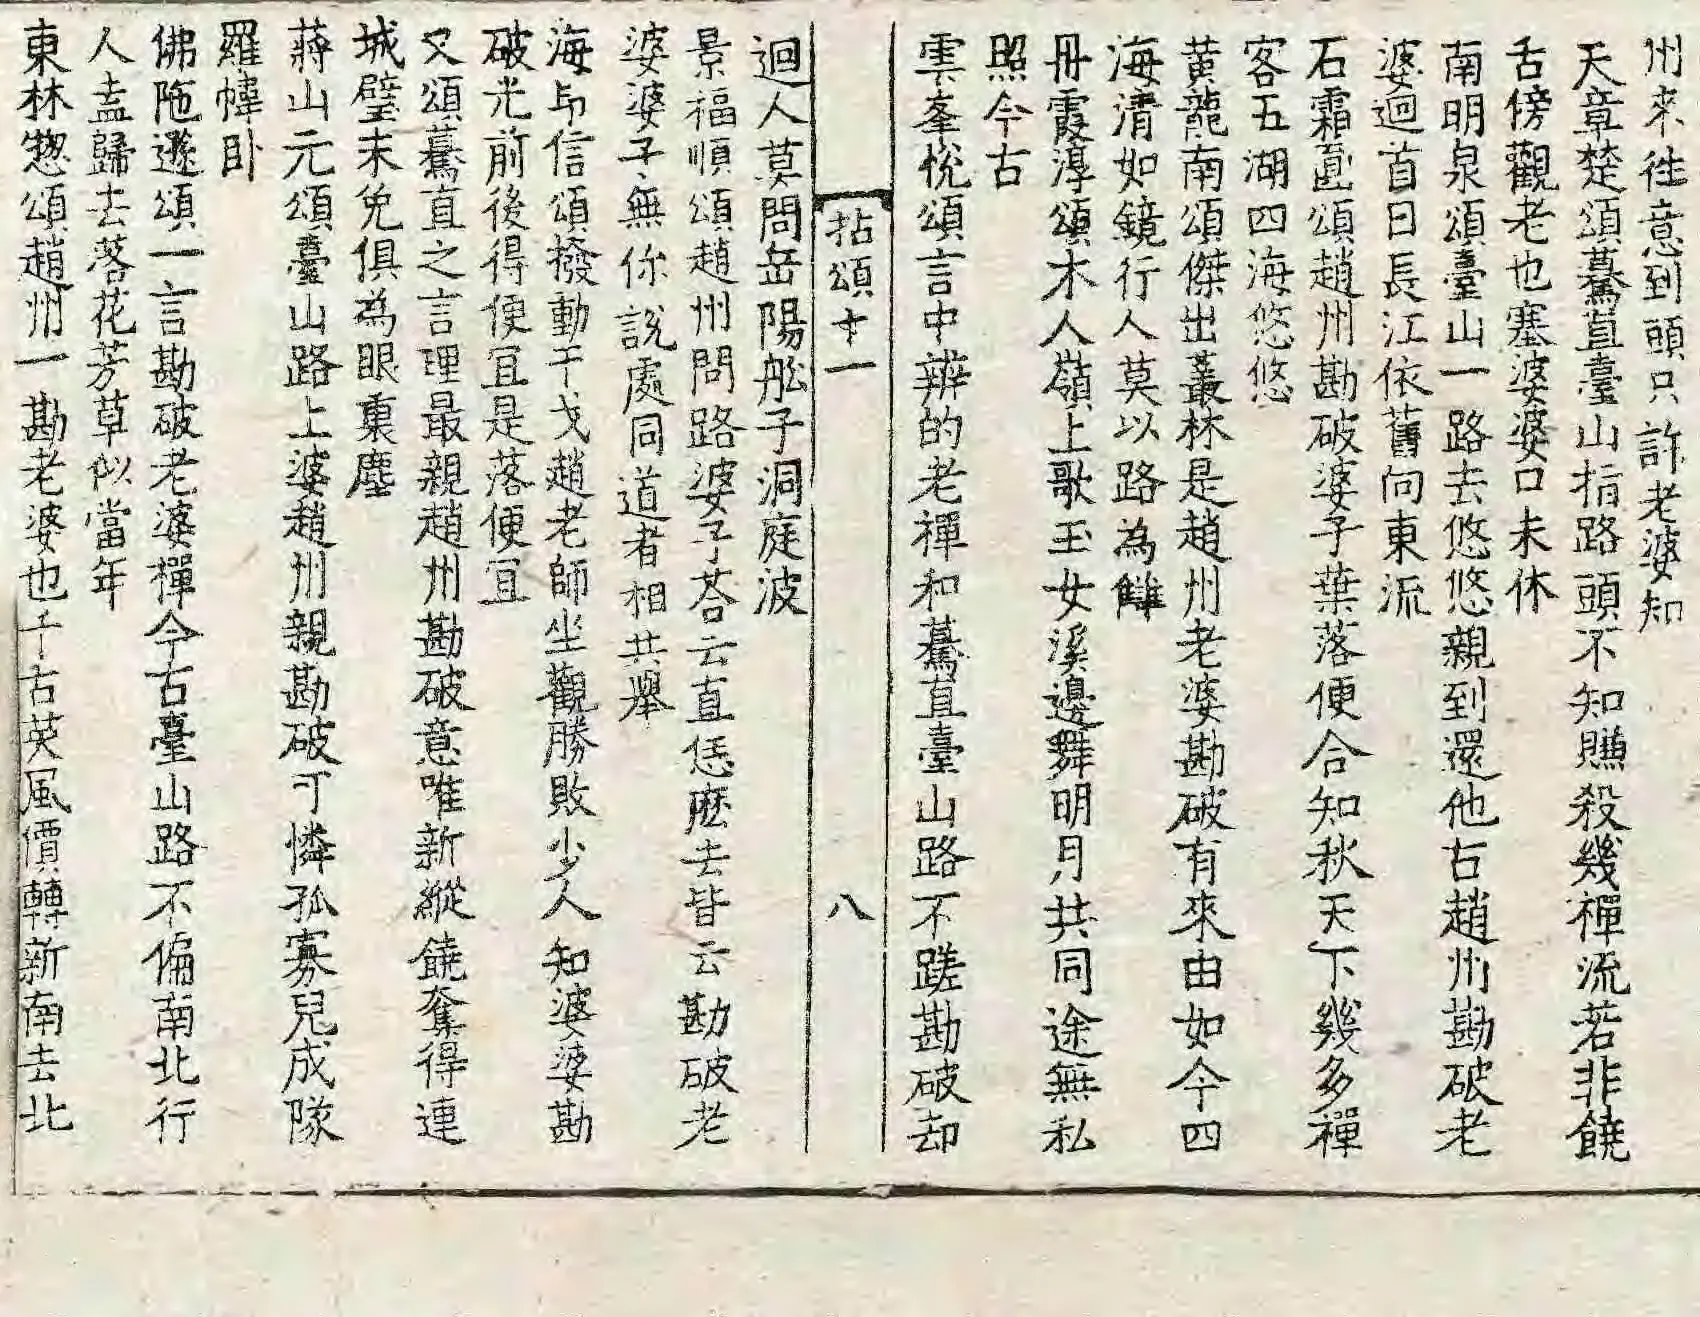 州來往意到頭只許老婆知
天章楚頌驀直臺山指路頭不知賺殺幾禪流若非饒
舌傍觀老也塞婆婆口未休
南明泉頌臺山一路去悠悠親到還他古趙州勘破老
婆迴首日長江依舊向東流
石霜圎頌趙州勘破婆子葉落便合知秋天下幾多禪
客五湖四海悠悠
黄龍南頌傑出叢林是趙州老婆勘破有來由如今四
海清如鏡行人莫以路為讎
丹霞淳頌木人嶺上歌玉女溪邊舞明月共同途無私
照今古
雲峯悅頌言中辨的老禪和驀直臺山路不蹉勘破却
拈頌十一 八
迴人莫問岳陽舩子洞庭波
景福順頌趙州問路婆子荅云直恁麽去皆云勘破老
婆婆子無你說處同道者相共舉
海印信頌撥動干戈趙老師坐觀勝敗少人知婆婆勘
破光前後得便冝是落便冝
又頌驀直之言理最親趙州勘破意唯新縱饒奪得連
城璧未免俱為眼裏塵
蔣山元頌臺山路上婆趙州親勘破可憐孤寡兒成隊
羅幃卧
佛陁遜頌一言勘破老婆禪今古臺山路不偏南北行
人盍歸去落花芳草似當年
東林揔頌趙州一勘老婆也千古英風價轉新南去北